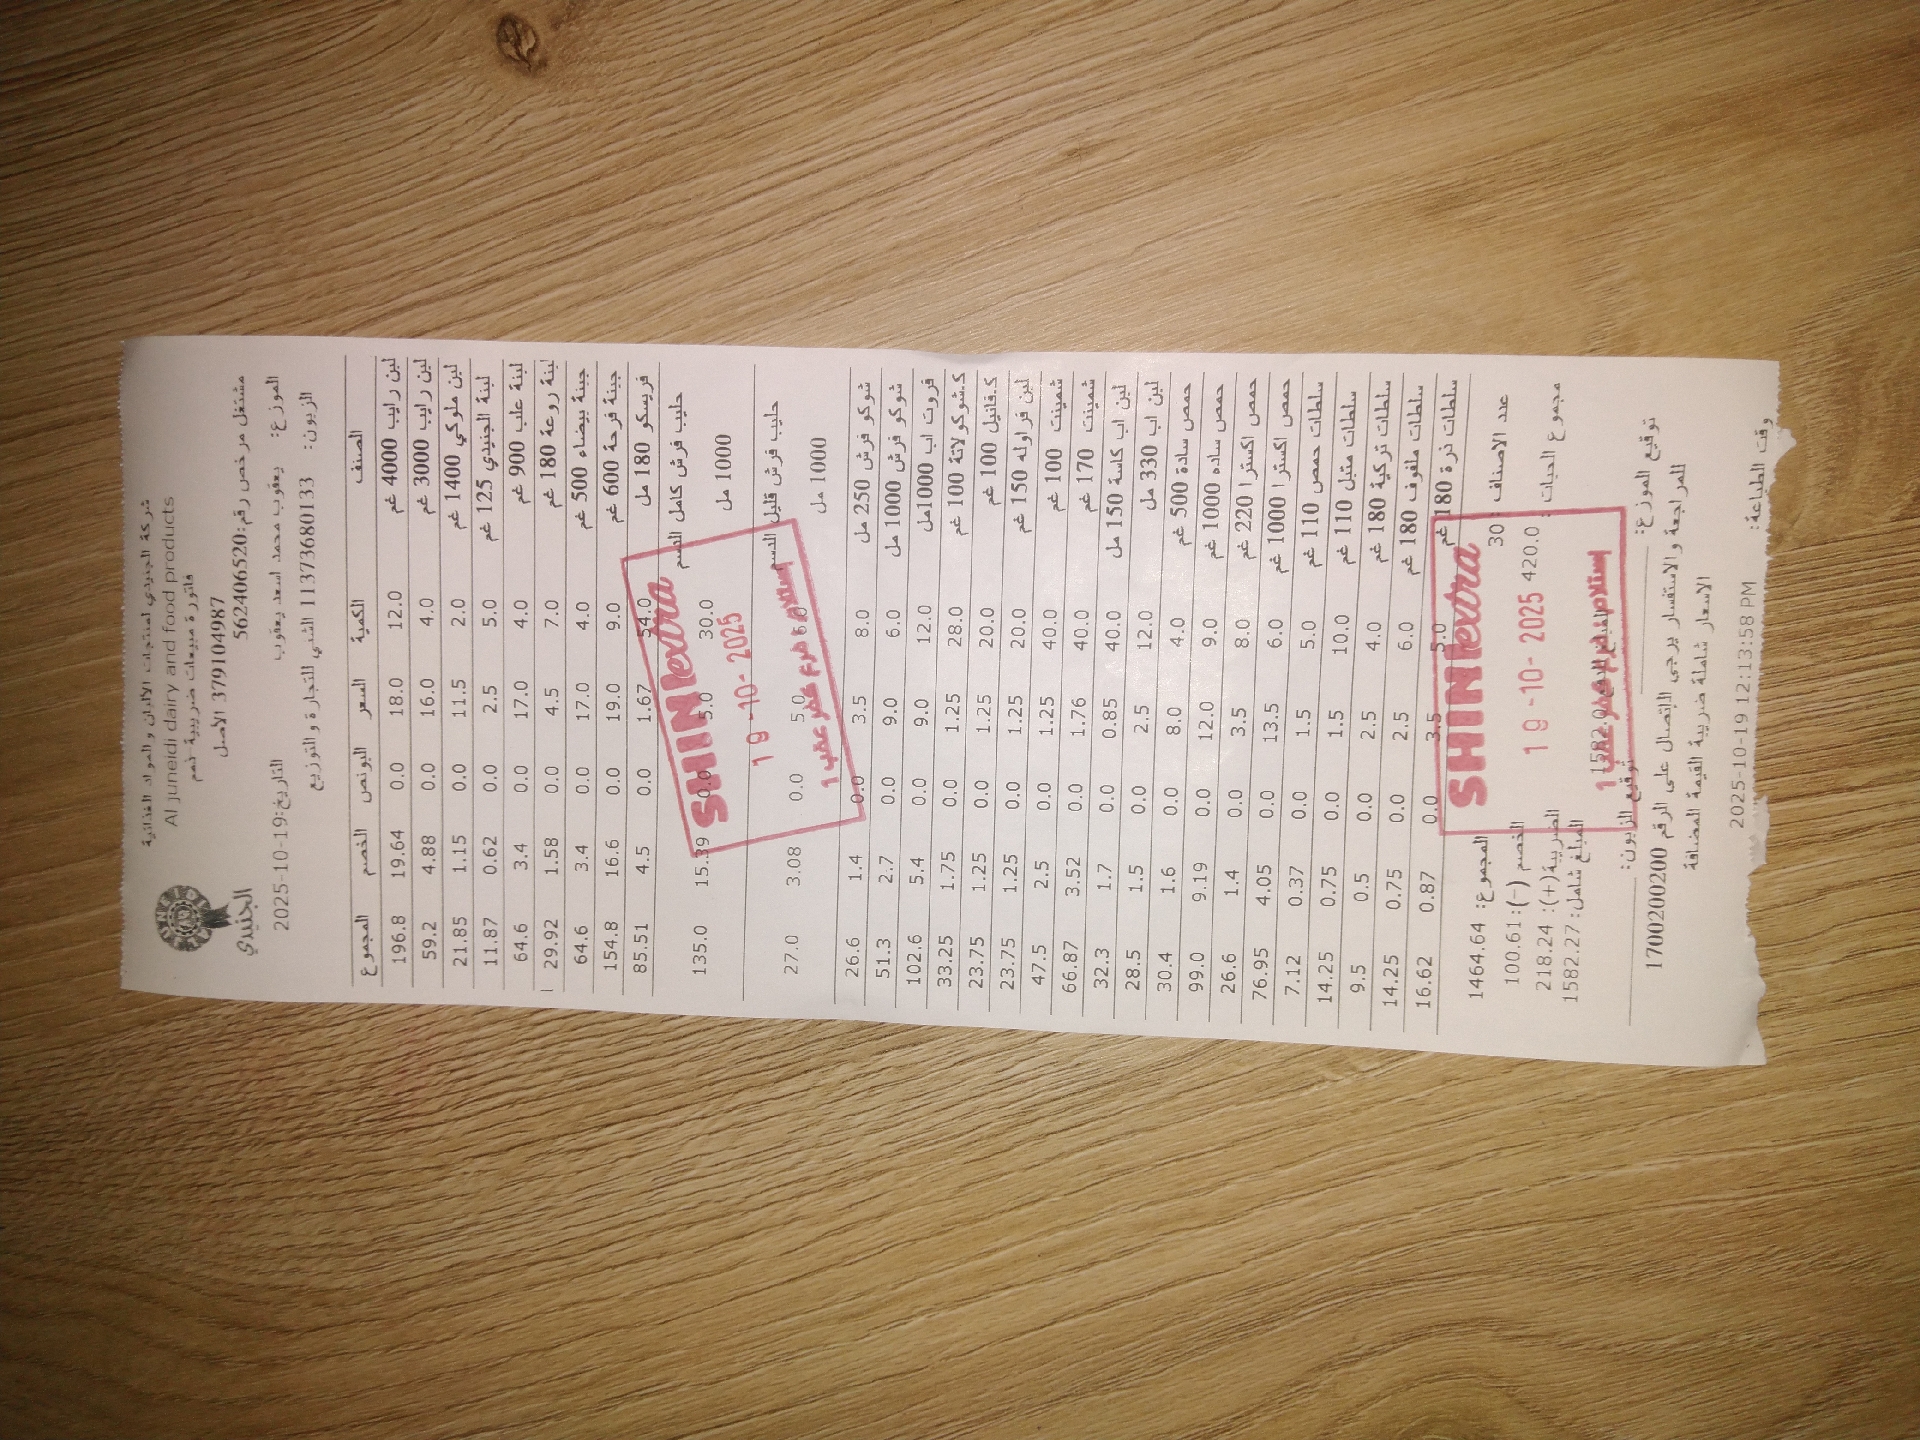 شركة الجنيدي لمنتجات الالبان والمواد الغذائية
Al juneidi dairy and food products
الجنيدي
فاتورة مبيعات ضريبية رقم
379104987 الاصل
مشتغل مرخص رقم:562406520
الموزع: يعقوب محمد اسعد يعقوب التاريخ:2025-10-19
الزبون: 11373680133 الشني للتجارة و التوزيع
الصنف الكمية السعر البونص الخصم المجموع
لبن رايب 4000 غم 12.0 18.0 0.0 19.64 196.8
لبن رايب 3000 غم 4.0 16.0 0.0 4.88 59.2
لبن ملوكي 1400 غم 2.0 11.5 0.0 1.15 21.85
لبنة الجنيدي 125 غم 5.0 2.5 0.0 0.62 11.87
لبنة علب 900 غم 4.0 17.0 0.0 3.4 64.6
لبنة روعة 180 غم 7.0 4.5 0.0 1.58 29.92
جبنة بيضاء 500 غم 4.0 17.0 0.0 3.4 64.6
جبنة فرحة 600 غم 9.0 19.0 0.0 16.6 154.8
فريسكو 180 مل 54.0 1.67 0.0 4.5 85.51
حليب فرش كامل الدسم
1000 مل 30.0 5.0 0.0 15.39 135.0
حليب فرش قليل الدسم
1000 مل 6.0 5.0 0.0 3.08 27.0
SHINI extra
19-10-2025
استلام فرع كفر عقب 1
شوكو فرش 250 مل 8.0 3.5 0.0 1.4 26.6
شوكو فرش 1000 مل 6.0 9.0 0.0 2.7 51.3
فروت اب 1000مل 12.0 9.0 0.0 5.4 102.6
ك.شوكولاتة 100 غم 28.0 1.25 0.0 1.75 33.25
ك.فانيل 100 غم 20.0 1.25 0.0 1.25 23.75
لبن فراوله 150 غم 20.0 1.25 0.0 1.25 23.75
شمينت 100 غم 40.0 1.25 0.0 2.5 47.5
شمينت 170 غم 40.0 1.76 0.0 3.52 66.87
لبن اب كاسة 150 مل 40.0 0.85 0.0 1.7 32.3
لبن اب 330 مل 12.0 2.5 0.0 1.5 28.5
حمص سادة 500 غم 4.0 8.0 0.0 1.6 30.4
حمص ساده 1000 غم 9.0 12.0 0.0 9.19 99.0
حمص اكسترا 220 غم 8.0 3.5 0.0 1.4 26.6
حمص اكسترا 1000 غم 6.0 13.5 0.0 4.05 76.95
سلطات حمص 110 غم 5.0 1.5 0.0 0.37 7.12
سلطات متبل 110 غم 10.0 1.5 0.0 0.75 14.25
سلطات تركية 180 غم 4.0 2.5 0.0 0.5 9.5
سلطات ملفوف 180 غم 6.0 2.5 0.0 0.75 14.25
سلطات ذرة 180 غم 5.0 3.5 0.0 0.87 16.62
عدد الاصناف : 30 المجموع: 1464.64
مجموع الحبات : 420.0 الخصم (-): 100.61
الضريبة(+): 218.24
1582.0 المبلغ شامل: 1582.27
SHINI extra
19-10-2025
استلام فرع كفر عقب 1
توقيع الموزع: توقيع الزبون:
للمراجعة والاستفسار يرجى الاتصال على الرقم 1700200200
الاسعار شاملة ضريبة القيمة المضافة
وقت الطباعة: 2025-10-19 12:13:58 PM